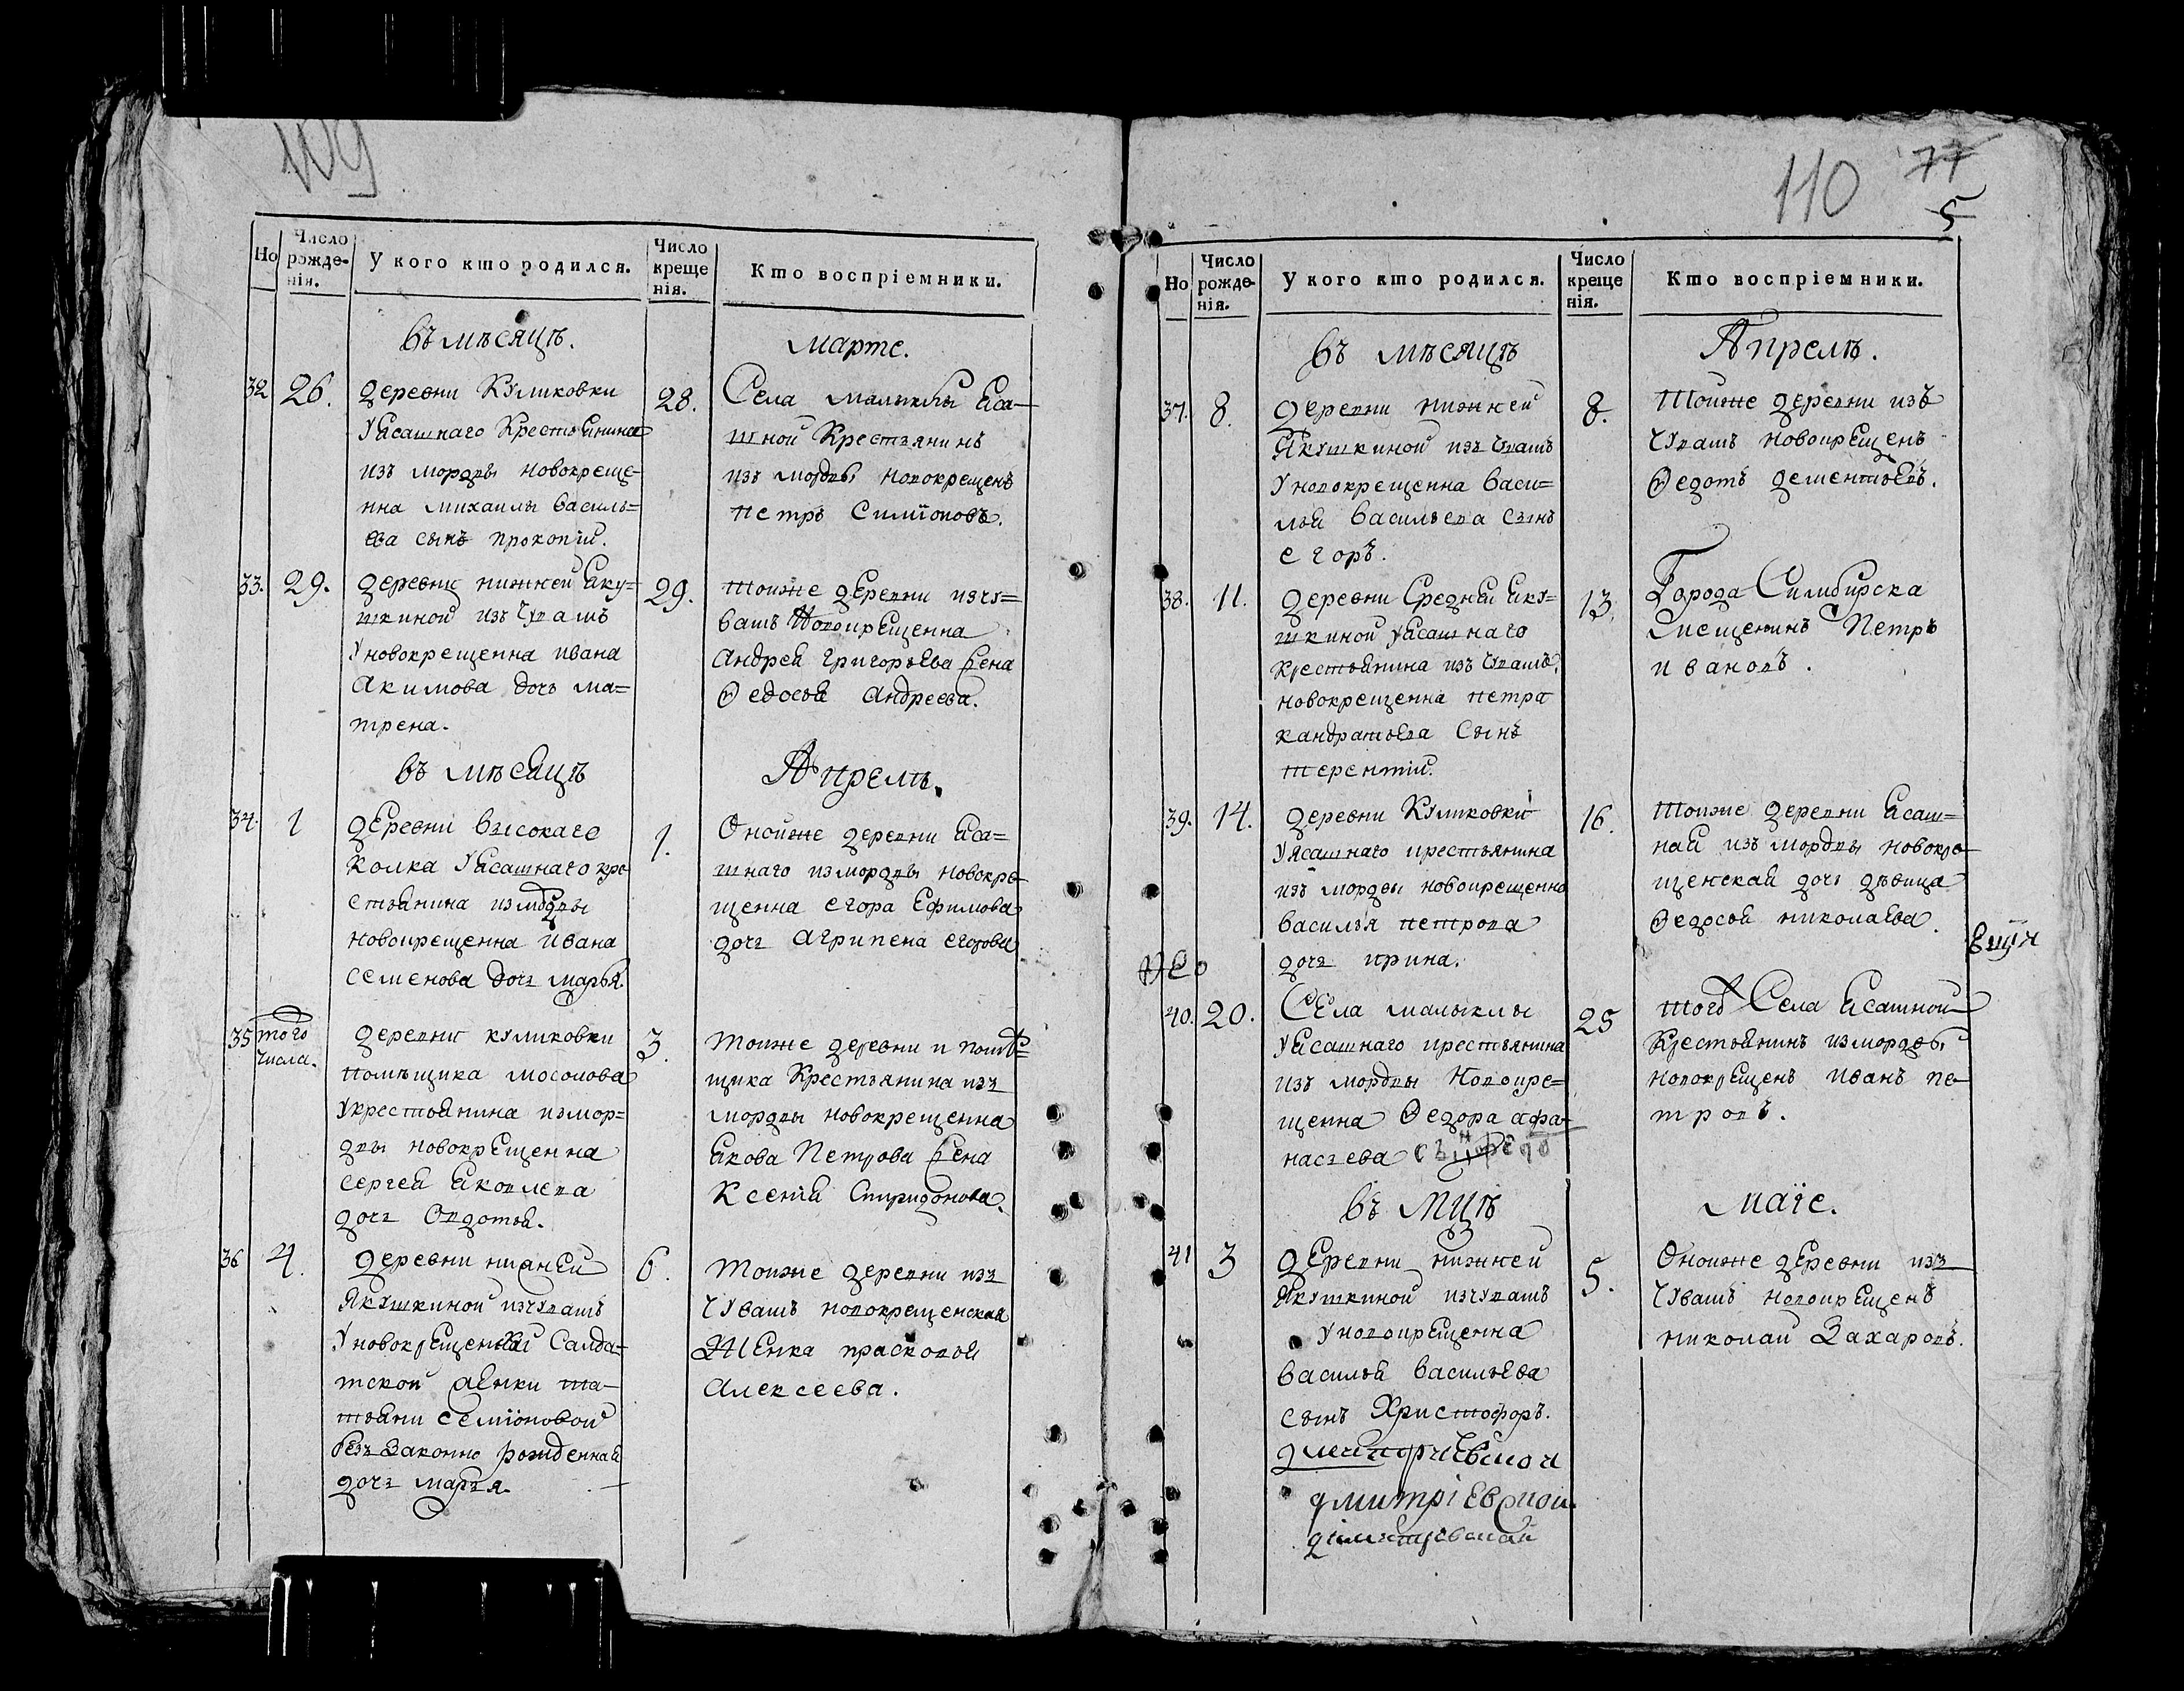 109
Но
Число рожденія.
У кого кто родился.
Число крещенія.
Кто воспріемники.
въ мѣсяцѣ.
марте.
32
26.
деревни Куликовки
Уясашнаго Крестьянина
изъ мордвы новокреще-
нна михаилы василь=
ева сынъ прокопій.
28.
Села малыклы Яса-
шной Крестьянинъ
изъ мордвы новокрещенъ
петръ Симïоновъ.
33.
29.
деревни нижней Яку=
шкиной изъ Чувашъ
Уновокрещенна ивана
Акимова дочь ма=
трена.
29.
тойже деревни изчу=
вашъ Новокрещенна
Андрея Григорьева жена
Ѳедосья Андреева.
въ мѣсяцѣ
Апрелѣ.
34.
1
деревни высокаго
Колка Уясашнаго кре
стьянина измордвы
новокрещенна ивана
семенова дочь марья.
1.
Онойже деревни Яса=
шнаго измордвы новокре
щенна егора Ефимова
дочь Агрипена егорова
35
того
числа.
деревни куликовки
помѣщика мосолова
Укрестьянина измор=
двы новокрещенна
сергея Яковлева
дочь Овдотья.
3.
тойже деревни и помѣ=
щика Крестьянина изъ
мордвы новокрещенна
Якова Петрова жена
Ксенія Спиридонова.
36
4.
деревни нижней
Якушкиной изчувашъ
Уновокрещенской Салда=
тской женки та-
тьяни семïоновой
безъ законно рожденная
дочь марья.
6.
тойже деревни изъ
Чувашъ новокрещенская
Женка прасковья
Алексеева.
110
77
5
Но
Число рожденія.
У кого кто родился.
Число крещенія.
Кто воспріемники.
въ мѣсяцѣ
Апрелѣ.
37.
8.
деревни нижней
Якушкиной изъ Чувашъ
Уновокрещенна васи=
лья васильева сынъ
егоръ.
8.
тойже деревни изъ
Чувашъ новокрещенъ
Ѳедотъ дементьевъ.
38.
11.
деревни Средней Яку=
шкиной Уясашнаго
Крестьянина изъ Чувашъ,
новокрещенна петра
кандратьева Сынъ
терентій.
13.
Города Симбирска
мещенинъ Петръ
ивановъ.
39.
14.
деревни Куликовки
Уясашнаго крестьянина
изъ мордвы новокрещенно
василья петрова
дочь ирина.
16.
тойже деревни Ясаш=
ная изъ мордвы новокре-
щенская дочь дѣвица
Ѳедосья николаева.
40.
20.
Села малыклы
Уясашнаго крестьянина
изъ мордвы Новокре=
щенна Ѳедора афа-
насьева
25
того Села Ясашной
Крестьянинъ измордвы
новокрещенъ иванъ пе-
тровъ.
въ мцѣ
маïе.
41
3
деревни нижней
Якушкиной изчувашъ
Уновокрещенна
василья васильева
сынъ Христофоръ.
5.
Онойже деревни изъ
Чувашъ новокрещенъ
николай Захаровъ.
дмитріевской